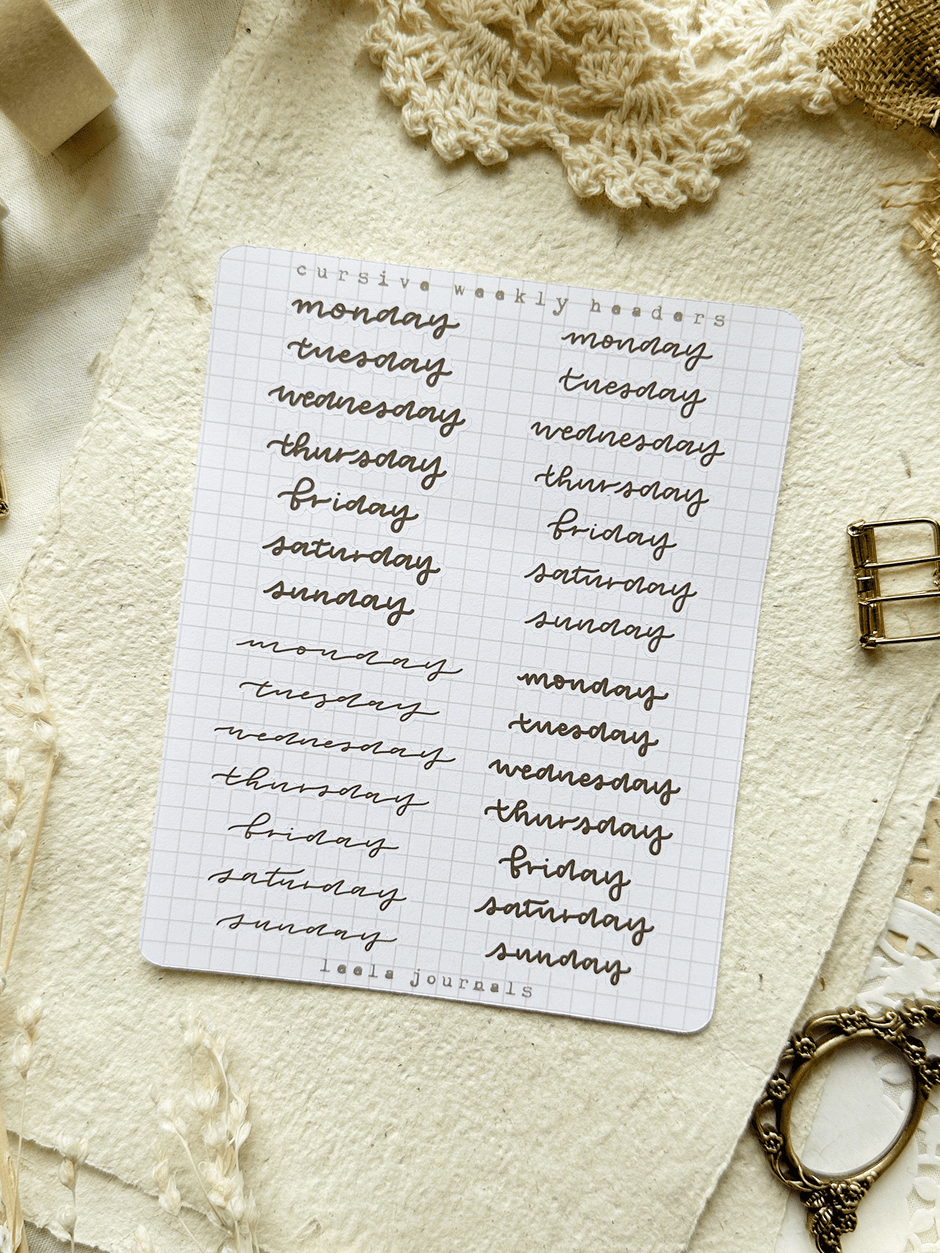 cursive weekly headers
monday
tuesday
wednesday
thursday
friday
saturday
sunday
monday
tuesday
wednesday
thursday
friday
saturday
sunday
monday
tuesday
wednesday
thursday
friday
saturday
sunday
monday
tuesday
wednesday
thursday
friday
saturday
sunday
leela journals